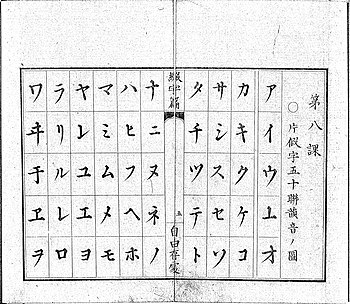 第八課
○片假字五十聯韻音ノ圖
アイウエオ
カキクケコ
サシスセソ
タチツテト
綴字篇
五
自由
ナニヌネノ
ハヒフヘホ
マミムメモ
ヤユエヨ
ラリルレロ
ワヰ于ヱヲ